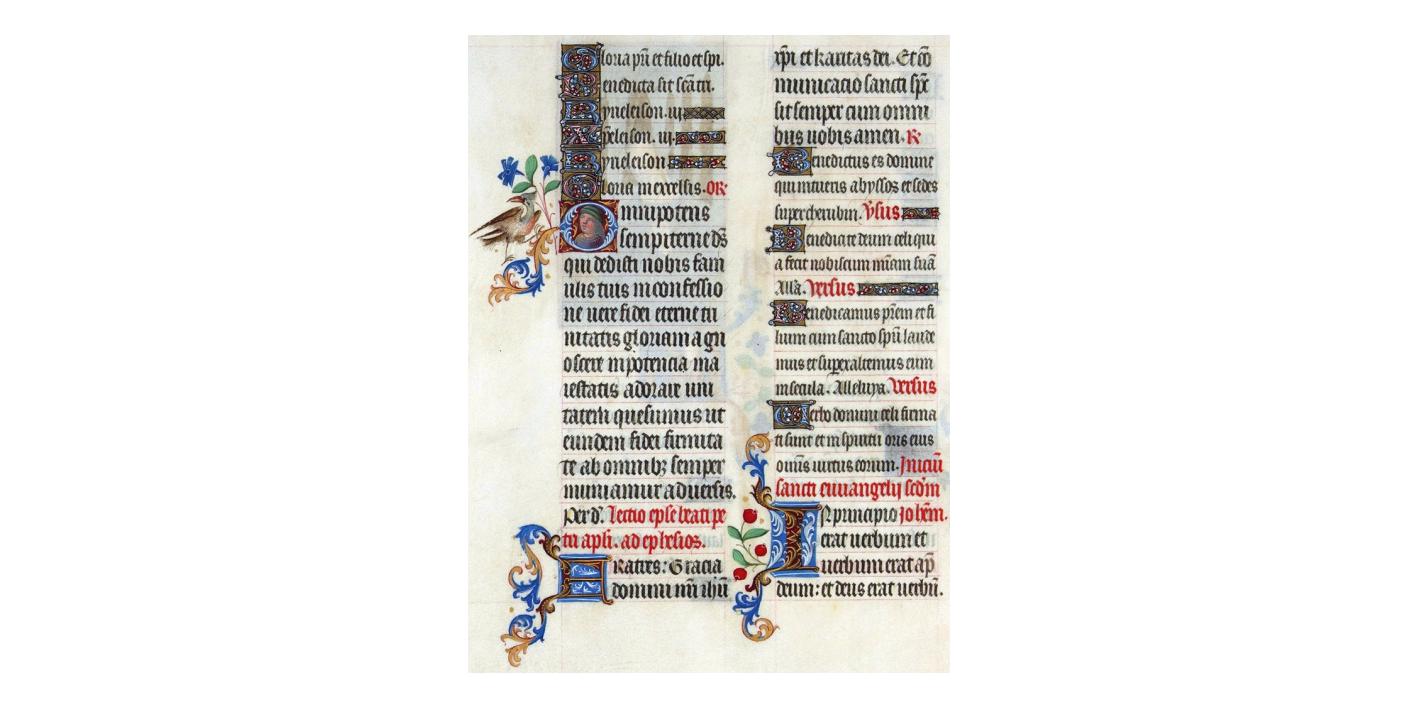 Gloria pri et filio et spi.
Benedicta sit scâ tri.
Kyrieleison. iij.
Xpeleison. iij.
Kyrieleison
Gloria in excelsis. OR
Omnipotens
sempiterne ds
qui dedisti nobis fam
ulis tuis in confessio
ne uere fidei eterne tri
nitatis gloriam agn
oscere in potencia ma
iestatis adorare uni
tatem quesumus ut
eiusdem fidei firmita
te ab omnibꝫ semper
muniamur aduersis.
Per d. Lectio eple beati pe
tri apli. ad ephesios.
FRatres: Gracia
domini nrī ihū
xpi et karitas dei. Et cō
municacio sancti spē
sit semper cum omni
bus uobis amen. R
Benedictus es domine
qui intueris abyssos et sedes
super cherubin. Vsus
Benedicite deum celi qui
a fecit nobiscum mīam suā
Allā. Versus
Benedicamus prēm et fi
lium cum sancto spū laude
mus et superexaltemus eum
in secula. Alleluya. Versus
Uerbo domini celi firma
ti sunt et in spiritu oris eius
omīs uirtus eorum. Iniciū
sancti euuangelij scdm
IN principio Johēm.
erat uerbum et
uerbum erat ap̄
deum: et deus erat uerbū.